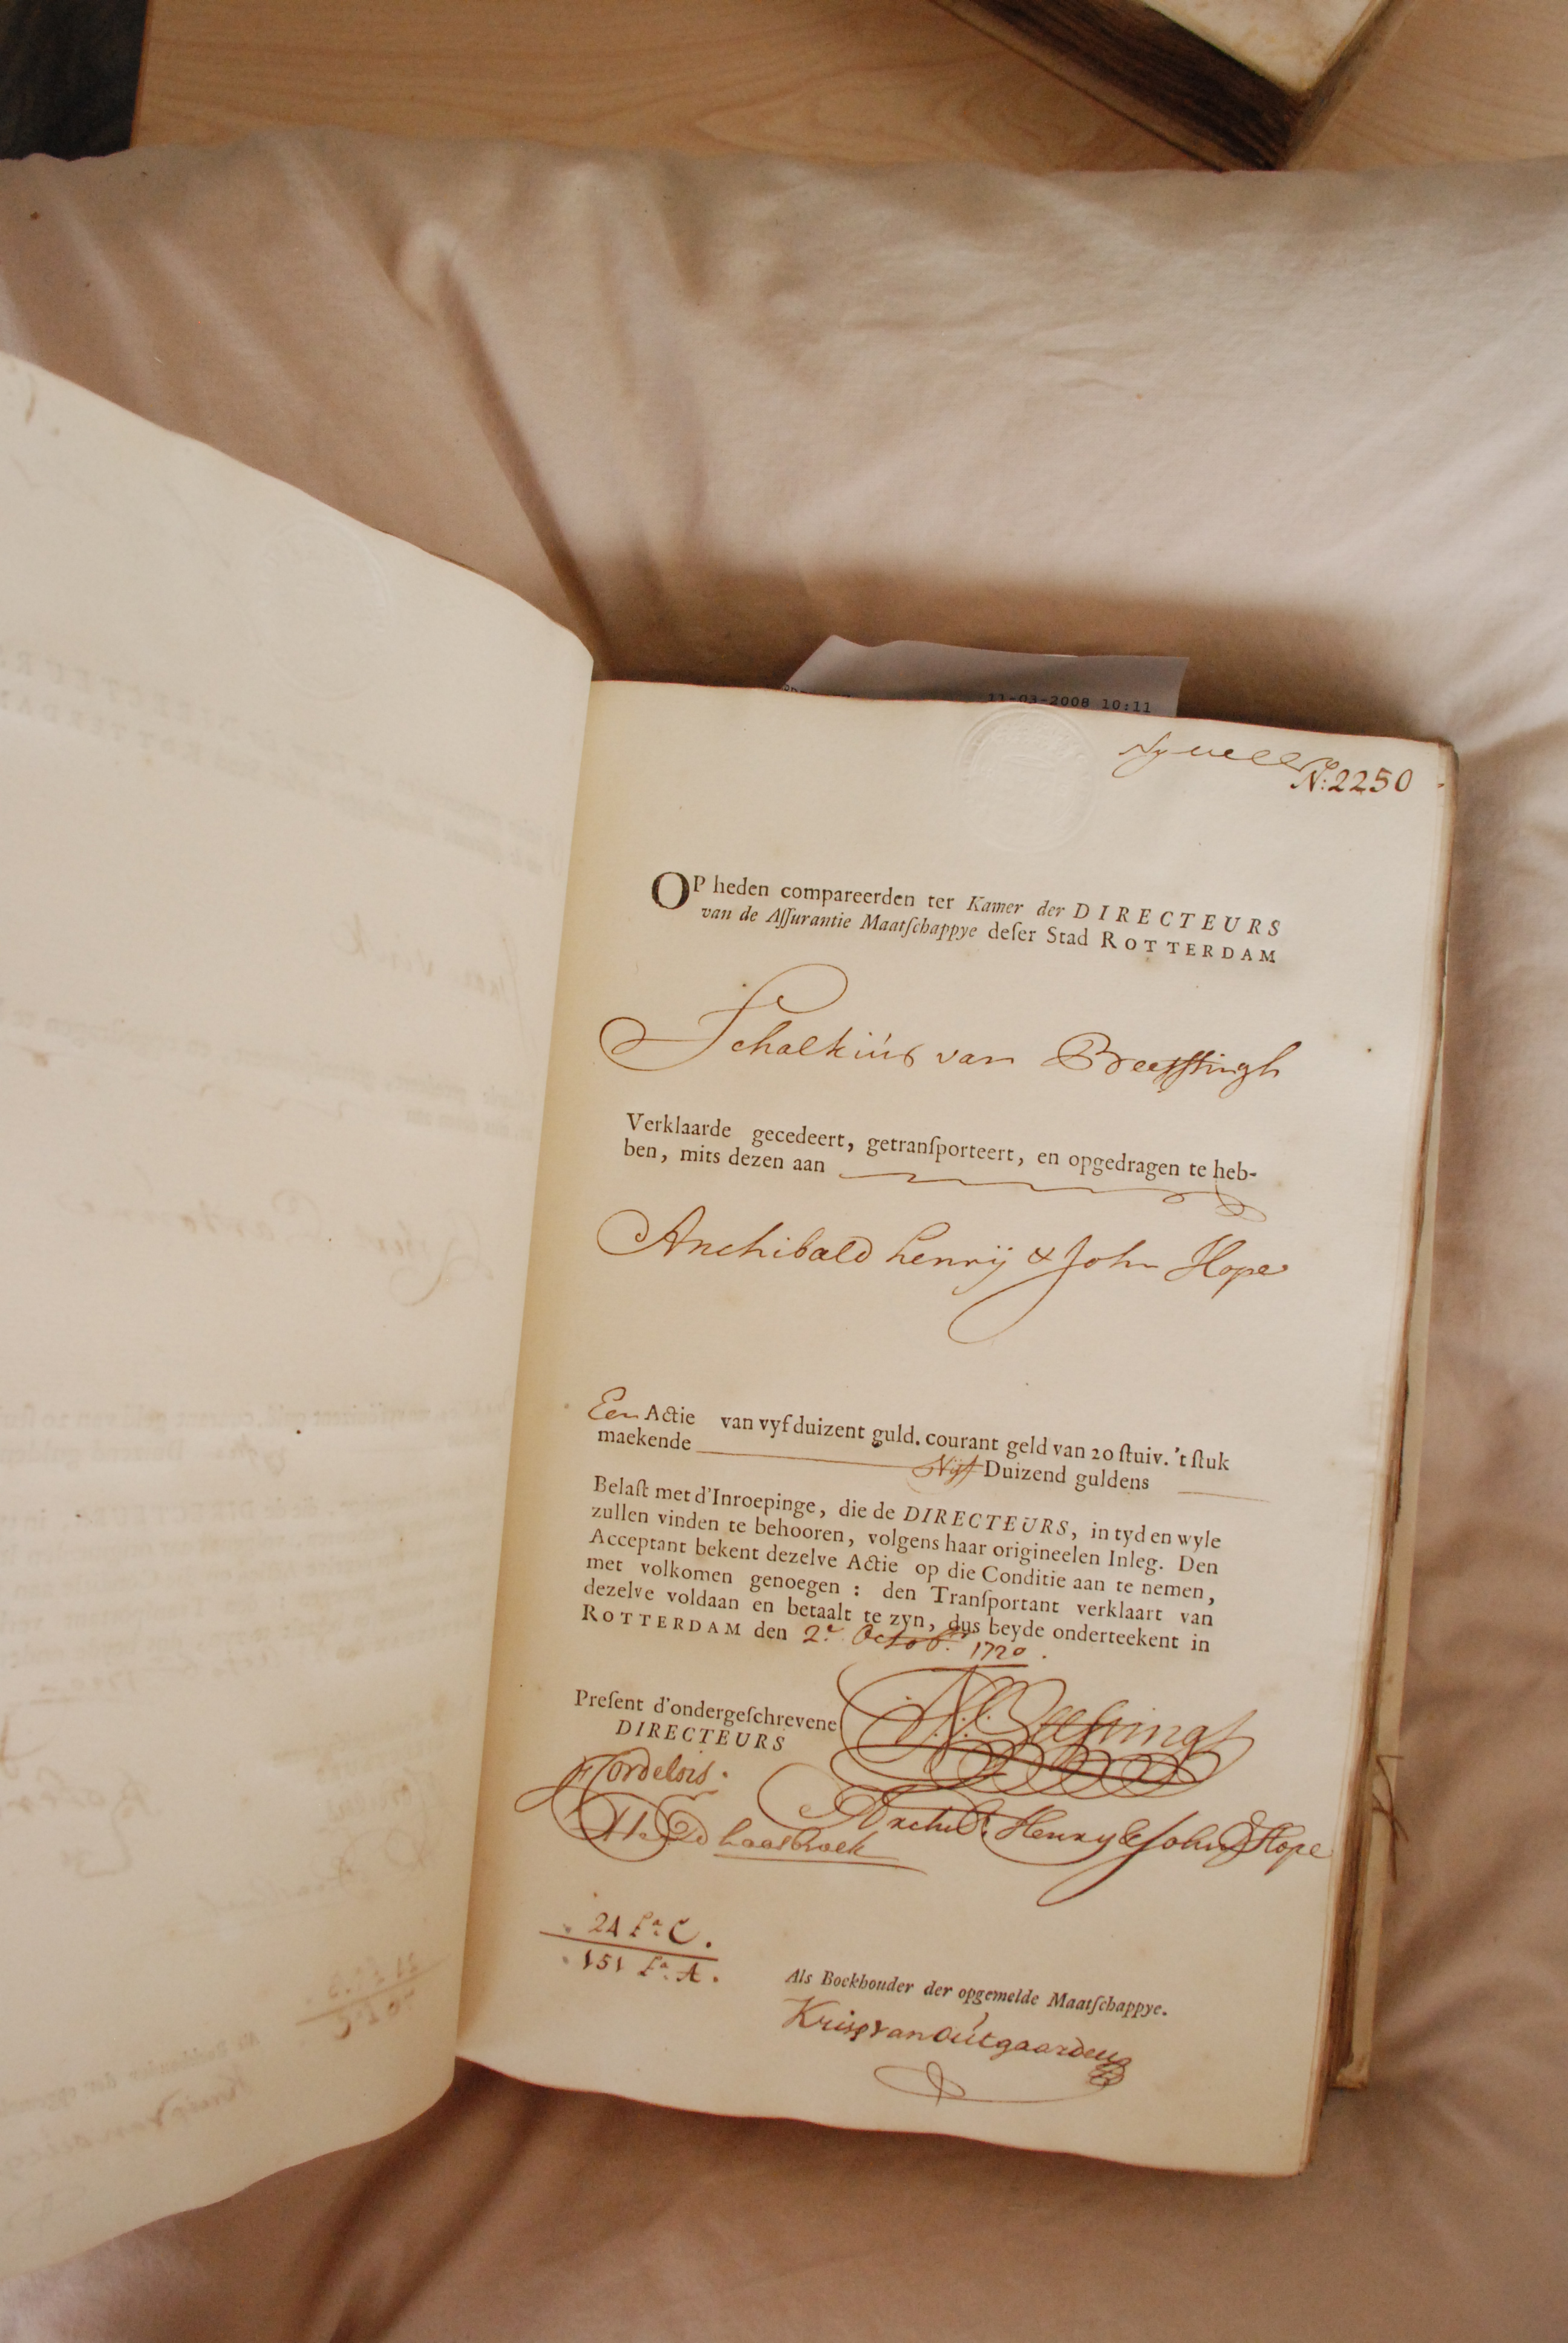 11-03-2008 10:11
N:2250
OP heden compareerden ter Kamer der DIRECTEURS
van de Aſſurantie Maatſchappye deſer Stad ROTTERDAM
Schalkiús van Beeſſtingh
Verklaarde gecedeert, getranſporteert, en opgedragen te heb-
ben, mits dezen aan
Archibald henrij & John Hope
Een Actie van vyf duizent guld. courant geld van 20 ſtuiv. 't ſtuk
maekende Vijf Duizend guldens
Belaſt met d'Inroepinge, die de DIRECTEURS, in tyd en wyle
zullen vinden te behooren, volgens haar origineelen Inleg. Den
Acceptant bekent dezelve Actie op die Conditie aan te nemen,
met volkomen genoegen : den Tranſportant verklaart van
dezelve voldaan en betaalt te zyn, dus beyde onderteekent in
ROTTERDAM den 2e Octob.r 1720.
Preſent d'ondergeſchrevene
DIRECTEURS
Archd. Henry & John Hope
24 Ln. C.
151 Ln. A.
Als Bockhouder der opgemelde Maatſchappye.
Kruip van oútgaarden